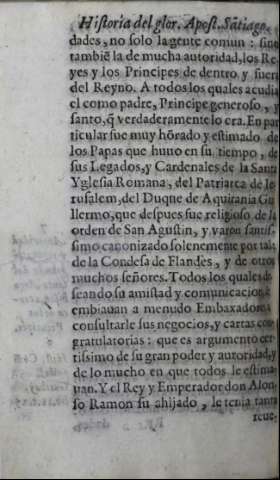 Historia del glor. Apost. Sãtiago,
dades, no solo la gente comun: sino
tambiẽ la de mucha autoridad, los Re
yes y los Principes de dentro y fuera
del Reyno. A todos los quales acudia
el como padre, Principe generoso, y
santo, q̃ verdaderamente lo era. En par
ticular fue muy hõrado y estimado de
los Papas que huuo en su tiempo, de
sus Legados, y Cardenales de la Santa
Yglesia Romana, del Patriarca de Ie
rusalem, del Duque de Aquitania Gui
llermo, que despues fue religioso de la
orden de San Agustin, y varon santis
simo canonizado solenemente por tal:
de la Condesa de Flandes, y de otros
muchos señores. Todos los quales de
seando su amistad y comunicacion,
embiauan a menudo Embaxadores a
consultarle sus negocios, y cartas con
gratulatorias: que es argumento cer
tissimo de su gran poder y autoridad, y
de lo mucho en que todos le estima
uan. Y el Rey y Emperador don Alon
so Ramon su ahijado, le tenia tanta
reue-